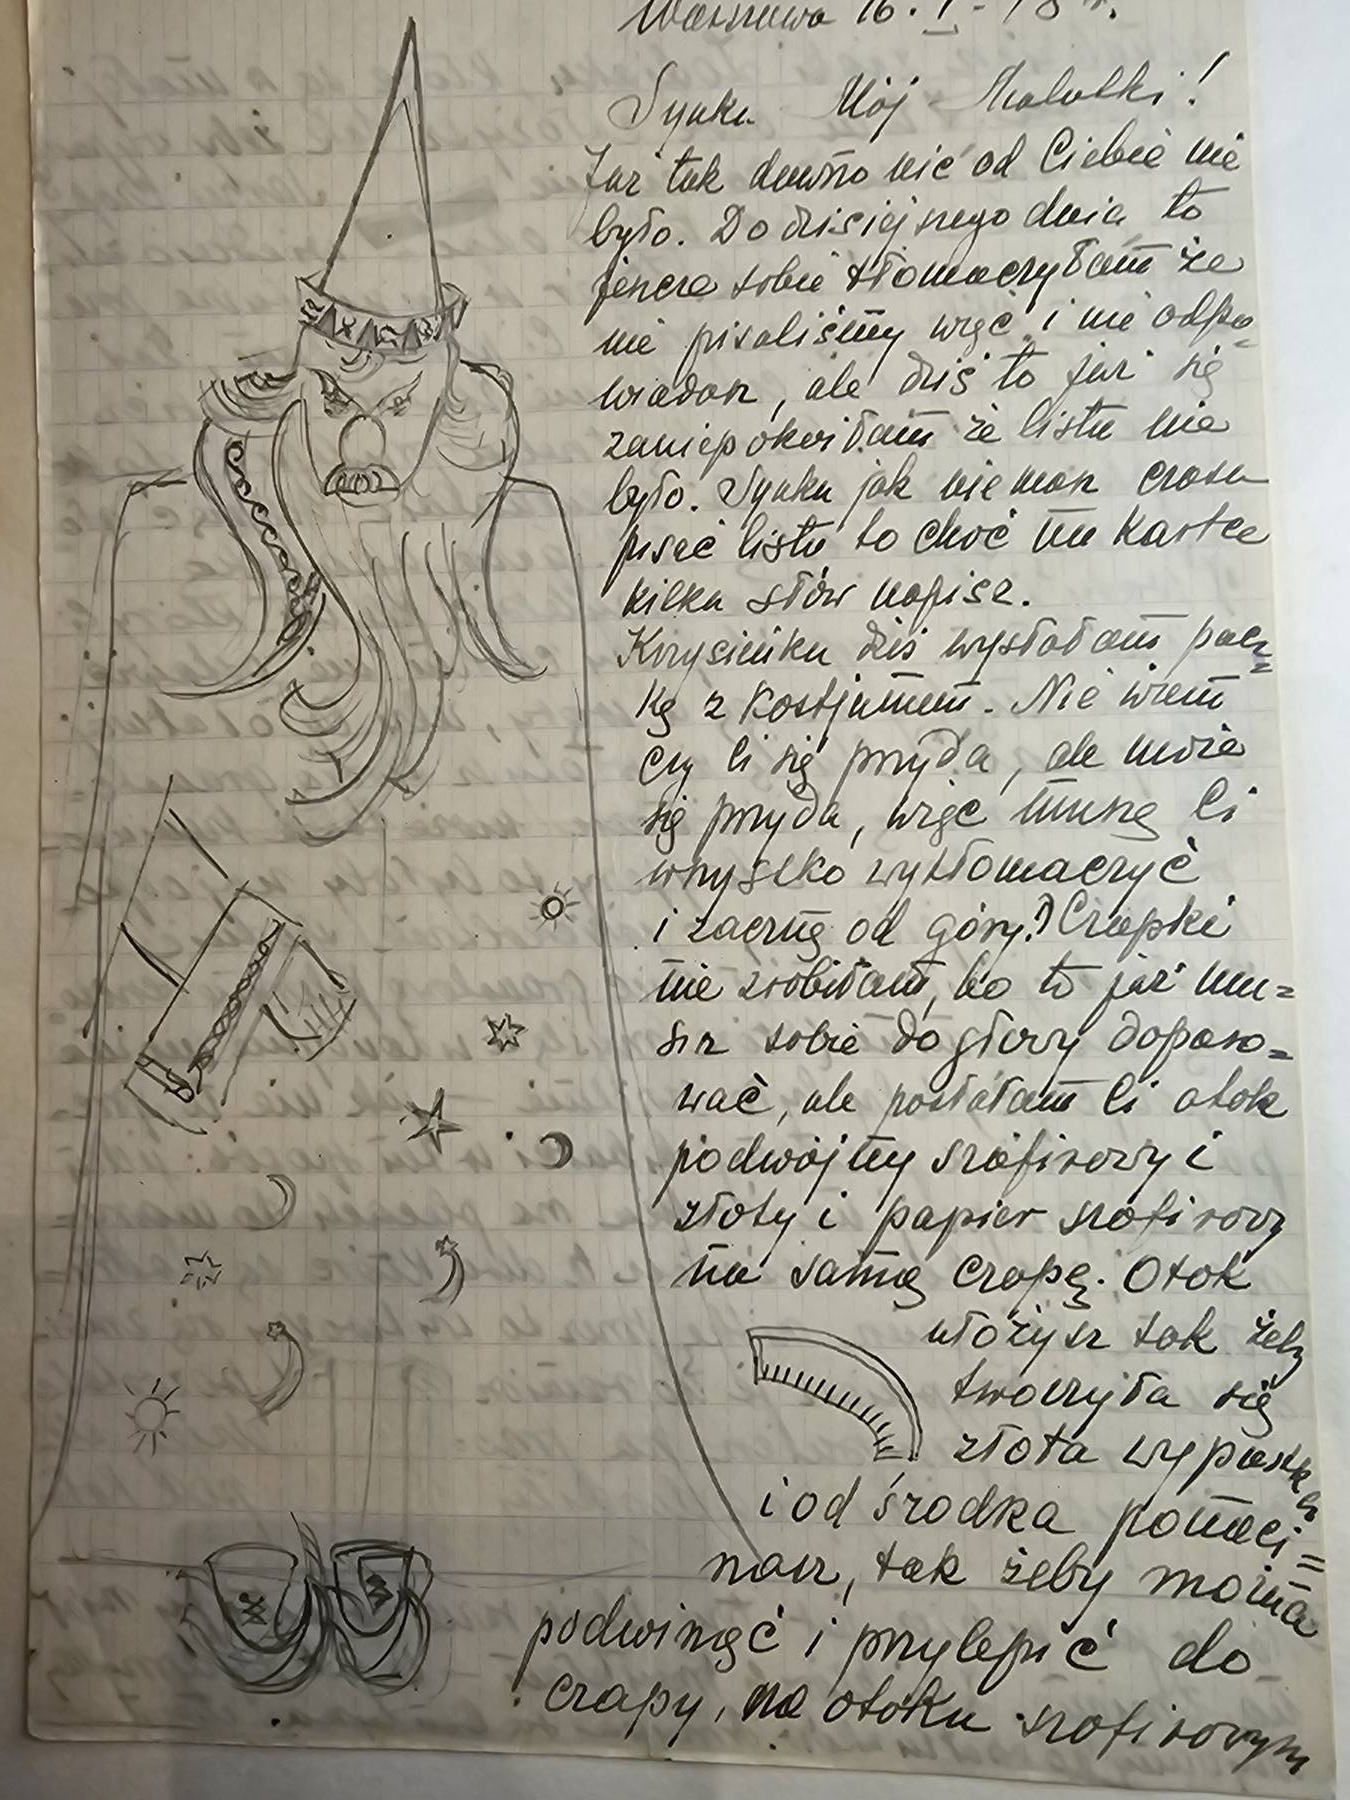 Warszawa 16. I -
Synku Mój Malutki!
Już tak dawno nic od Ciebie nie
było. Do dzisiejszego dnia to
jeszcze sobie tłomaczyłam że
nie pisaliśmy więc i nie odpo=
wiadasz, ale dziś to już się
zaniepokoiłam że listu nie
było. Synku jak nie masz czasu
pisać listu to choć na kartce
kilka słów napisz.
Krysieńku dziś wysłałam pacz=
kę z kostjumem. Nie wiem
czy Ci się przyda, ale może
się przyda, więc muszę Ci
wszystko wytłomaczyć
i zacznę od góry. 1) Czapki
nie zrobiłam, bo to już mu=
sisz sobie do głowy dopaso=
wać, ale posłałam Ci otok
podwójny szafirowy i
złoty i papier szafirowy
na samą czapę. Otok
ułożysz tak żeby
tworzyła się
złota wypustka
i od środka ponaci=
nasz, tak żeby można
podwinąć i przylepić do
czapy, na otoku szafirowym